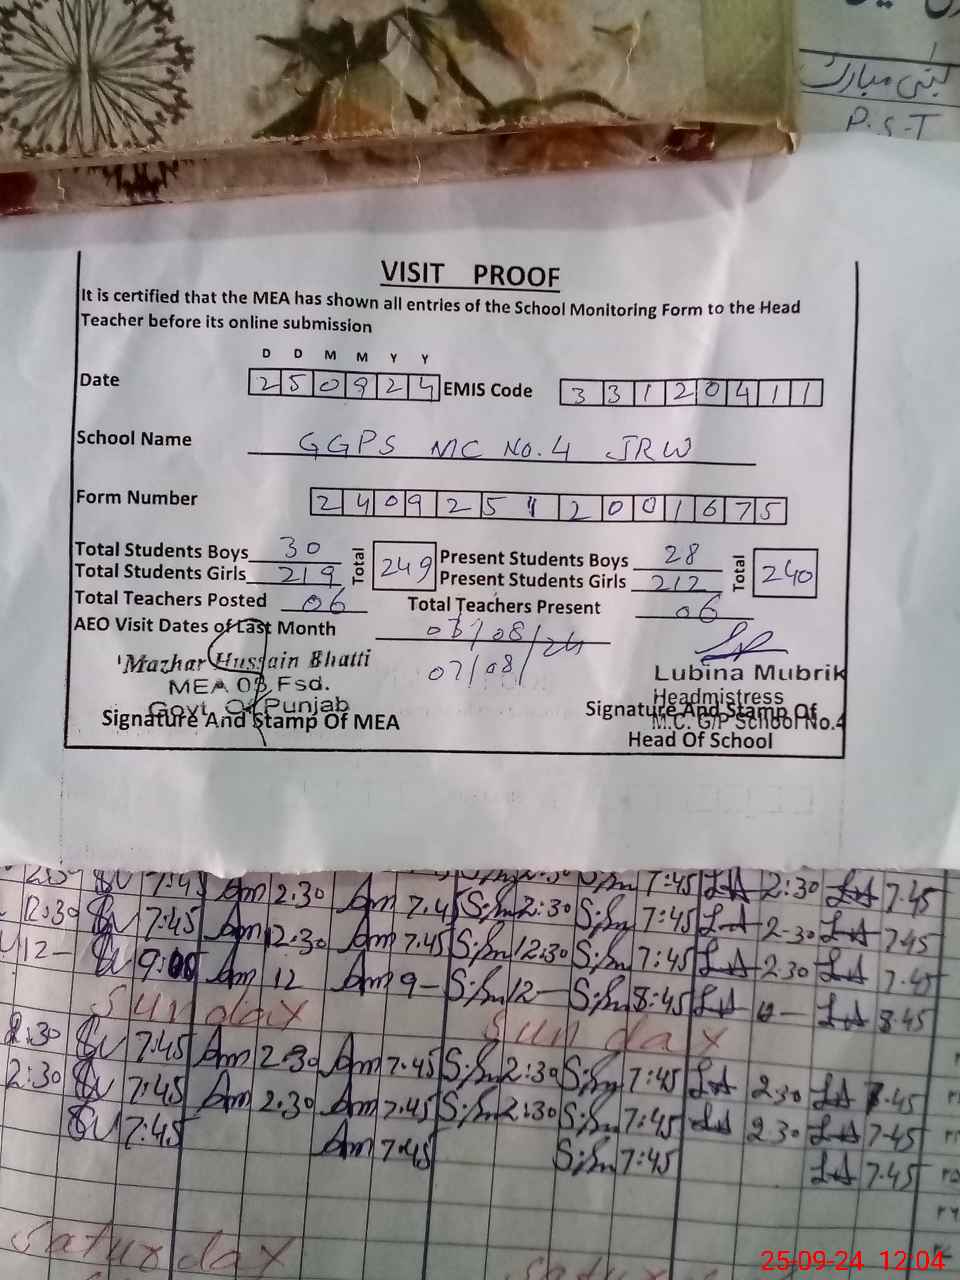 لبنیٰ مبارک
P.S.T
VISIT PROOF
It is certified that the MEA has shown all entries of the School Monitoring Form to the Head
Teacher before its online submission
D D M M Y Y
Date 250924 EMIS Code 33120411
School Name GGPS MC No.4 JRW
Form Number 240925 11 2001675
Total Students Boys 30 Total 249 Present Students Boys 28 Total 240
Total Students Girls 219 Present Students Girls 212
Total Teachers Posted 06 Total Teachers Present 06
AEO Visit Dates of Last Month 03/08/24
07/08/
Mazhar Hussain Bhatti
MEA 03, Fsd.
Govt. Of Punjab
Signature And Stamp Of MEA
Lubina Mubrik
Headmistress
M.C. G/P School No.4
Signature And Stamp Of
Head Of School
7:45 Am 2:30 Am 7.45 7:45 LA 2:30 LA 7.45
12:30 7:45 Am 12:30 Am 7.45 2:30 7:45 LA 2-30 LA 7.45
12- 9:00 Am 12 Am 9- 12:30 7:45 LA 2.30 LA 7.45
12- 8:45 LA LA 8.45
Sunday Sunday
2:30 7:45 Am 2:30 Am 7.45 2:30 7:45 LA 2:30 LA 7.45
2:30 7:45 Am 2:30 Am 7.45 2:30 7:45 LA 2.30 LA 7.45
7:45 Am 7.45 7:45 LA 7.45
Saturday
25-09-24 12:04